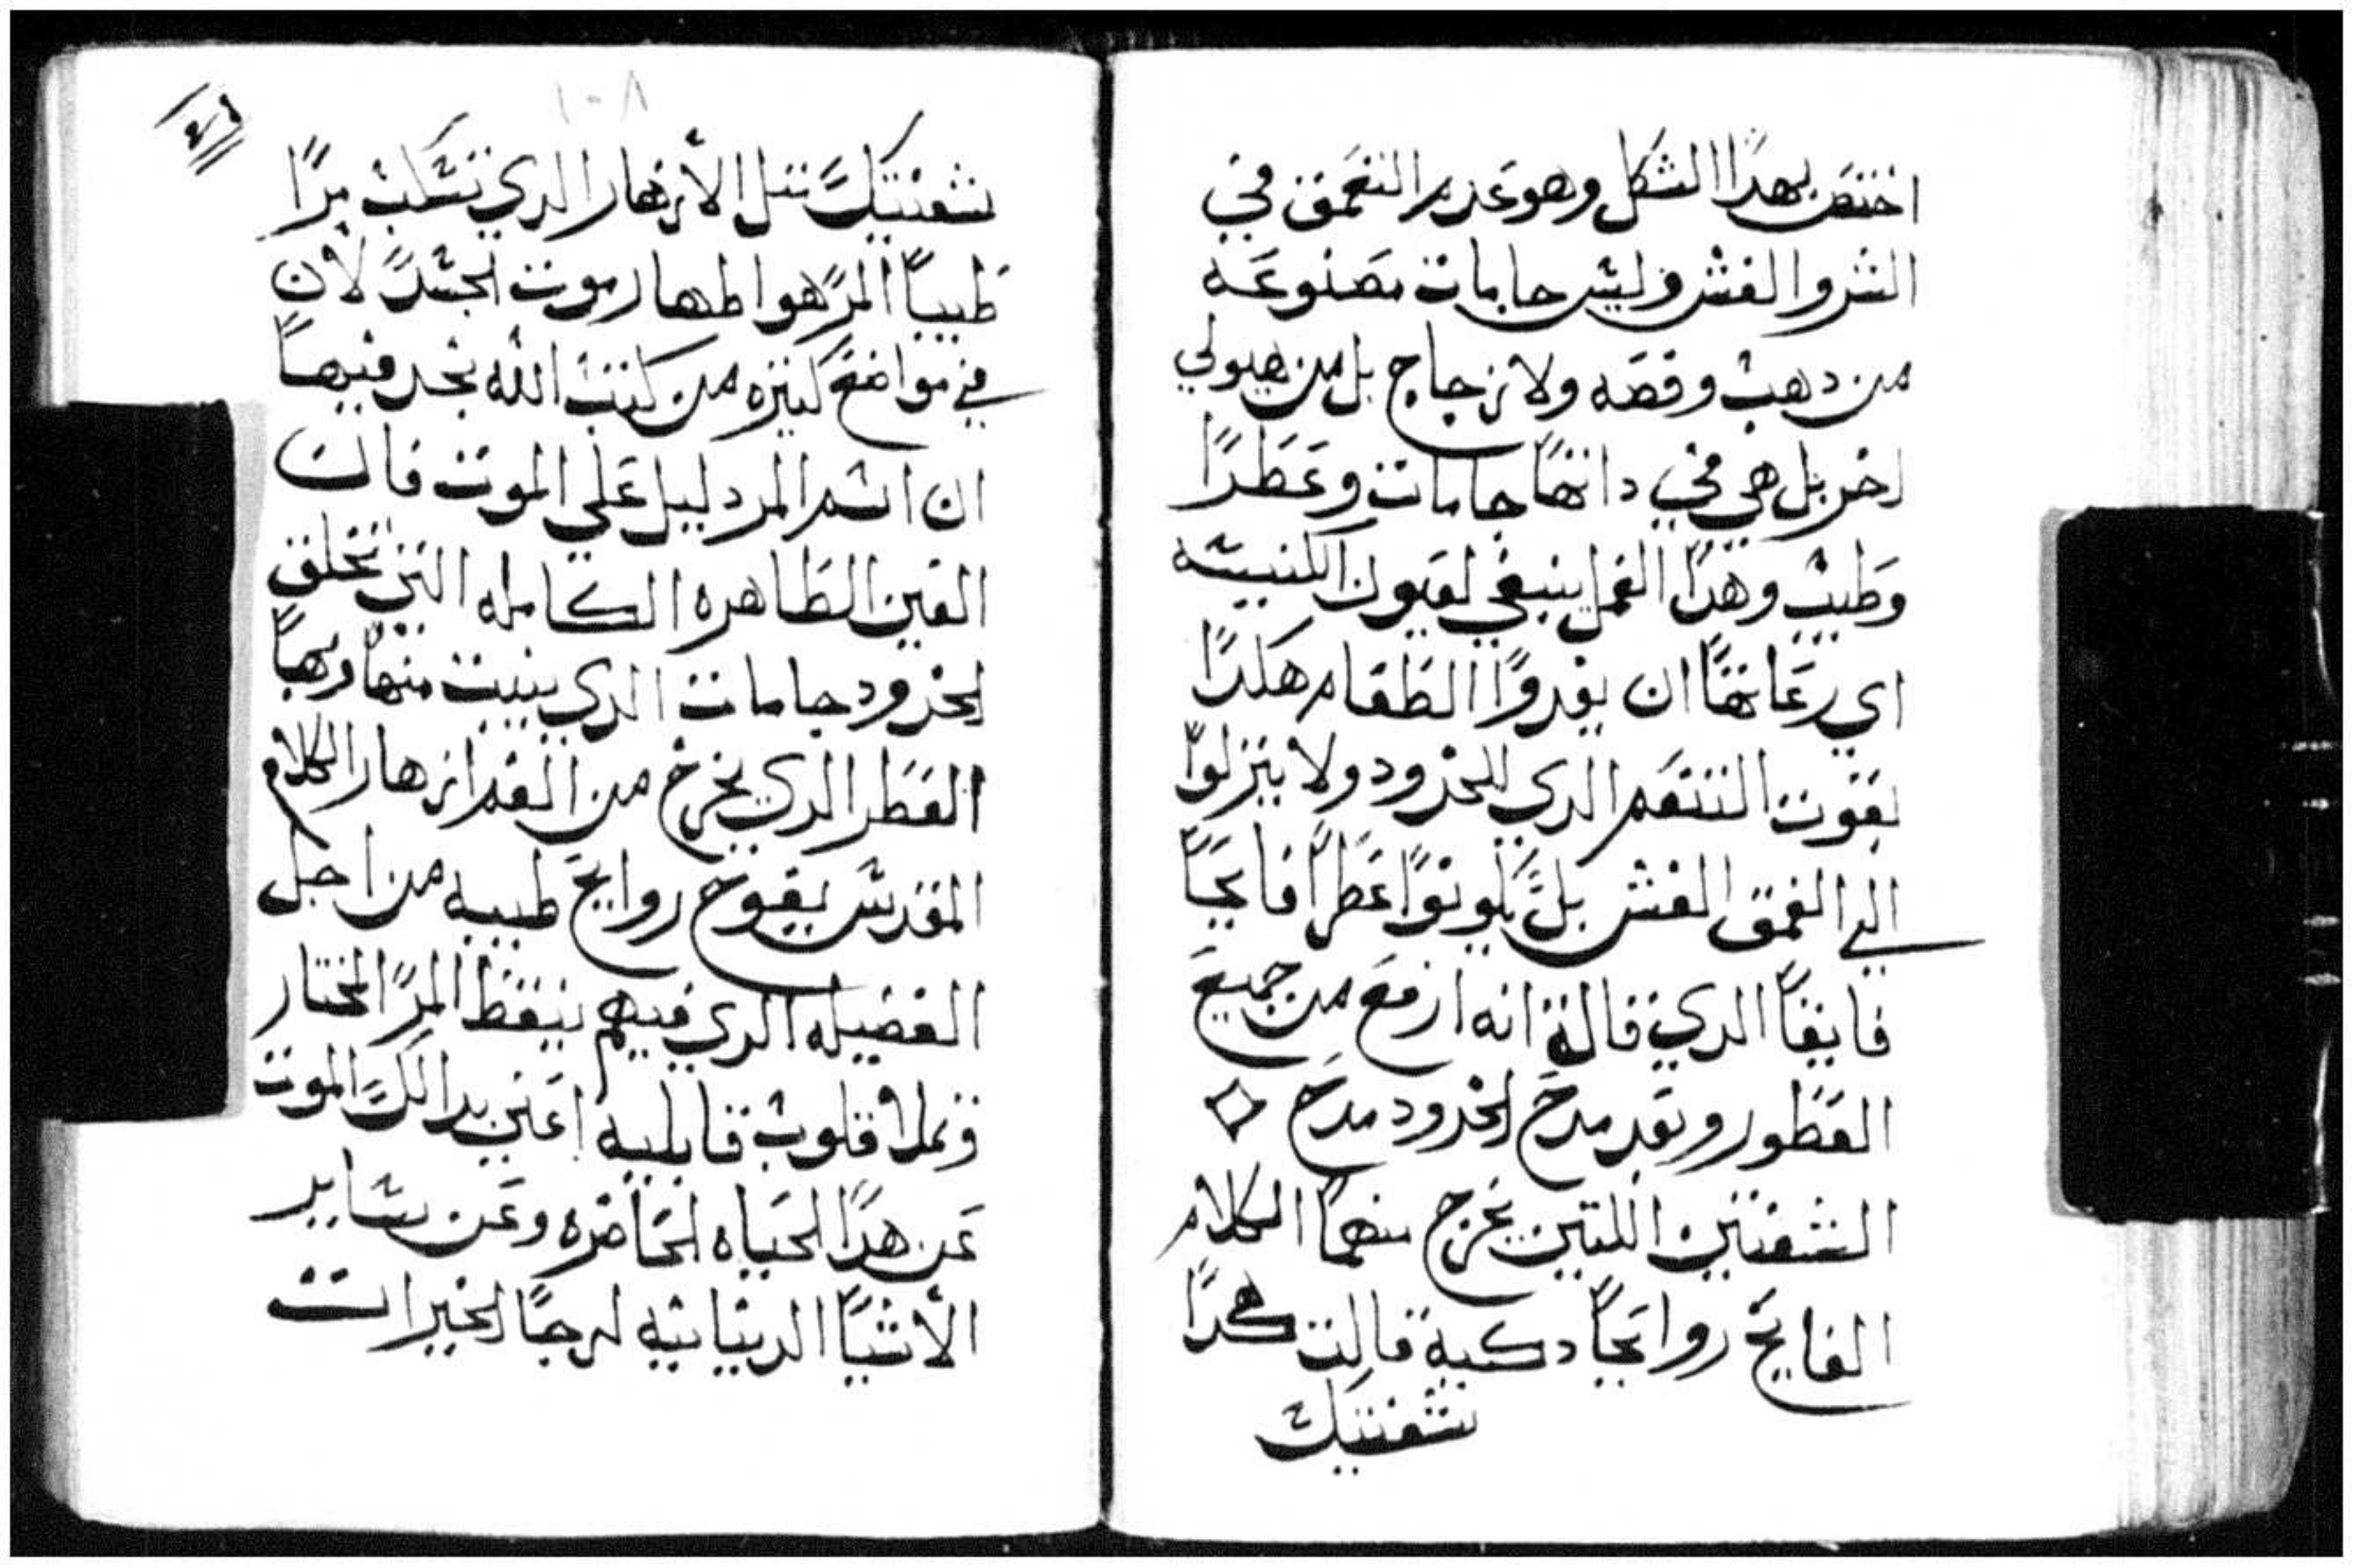 اختص بهدا الشكل وهو عديم التعمق في
الشر والغش وليس جامات مصنوعه
من دهب وفضه ولا زجاج بل من هيولي
اخر بل هي في داتها جامات وعطرا
وطيب وهدا الفعل ينبغي لعيون الكنيسه
اي رعاتها ان يعدوا الطعام هكدا
لقوت التنعم الدي للخدود ولا ينزلوا
الي العمق الغش بل يكونوا عطرا فايحا
فايقا الدي قالة انه ارفع من جميع
العطور وبعد مدح الخدود مدح
الشفتين اللتين يخرج منهما الكلام
الفايح روايحا دكية قالت هكدا
شفتيك
١٠٨
شفتيك تتل الأزهار الدي تسكب مرا
طيبا المر هو اظهار موت الجسد لأن
في مواضع كتيره من كتب الله نجد فيها
ان اسم المر دليل علي الموت فان
العين الطاهره الكامله التي تخلق
الخدود جامات الدي ينبت منها وبها
العطر الدي يخرج من الفم ازهار الكلام
المقدس يفوح روايح طيبه من اجل
الفضيله الدي فيهم ينقط المر المختار
وتملا قلوب قابليه اعني بدالك الموت
عن هدا الحياه الحاضره وعن ساير
الأشيا الدنيانيه لرجا الخيرات